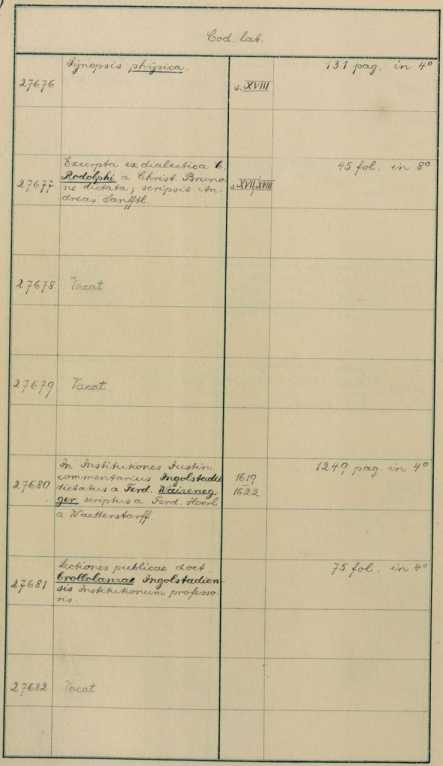 Cod. lat.
27676 Synopsis physica. s. XVIII 131 pag. in 4°
27677 Excerpta ex dialectica
Rodolphi a Christ. Bruno
ne dictata, scripsit An
dreas s. XVII.XVIII 45 fol. in 8°
27678 Vacat
27679 Vacat
27680 In Institutiones Justin.
commentarius Ingolstadii
dictatus a Ferd. Waizeneg
ger scriptus a Ferd. Hoerl
a Waetterstorff 1619
1622 1249 pag. in 4°
27681 Lectiones publicae doct.
Crollolanzae Ingolstadien-
sis Institutionum professo
ris. 75 fol. in 4°
27682 Vacat